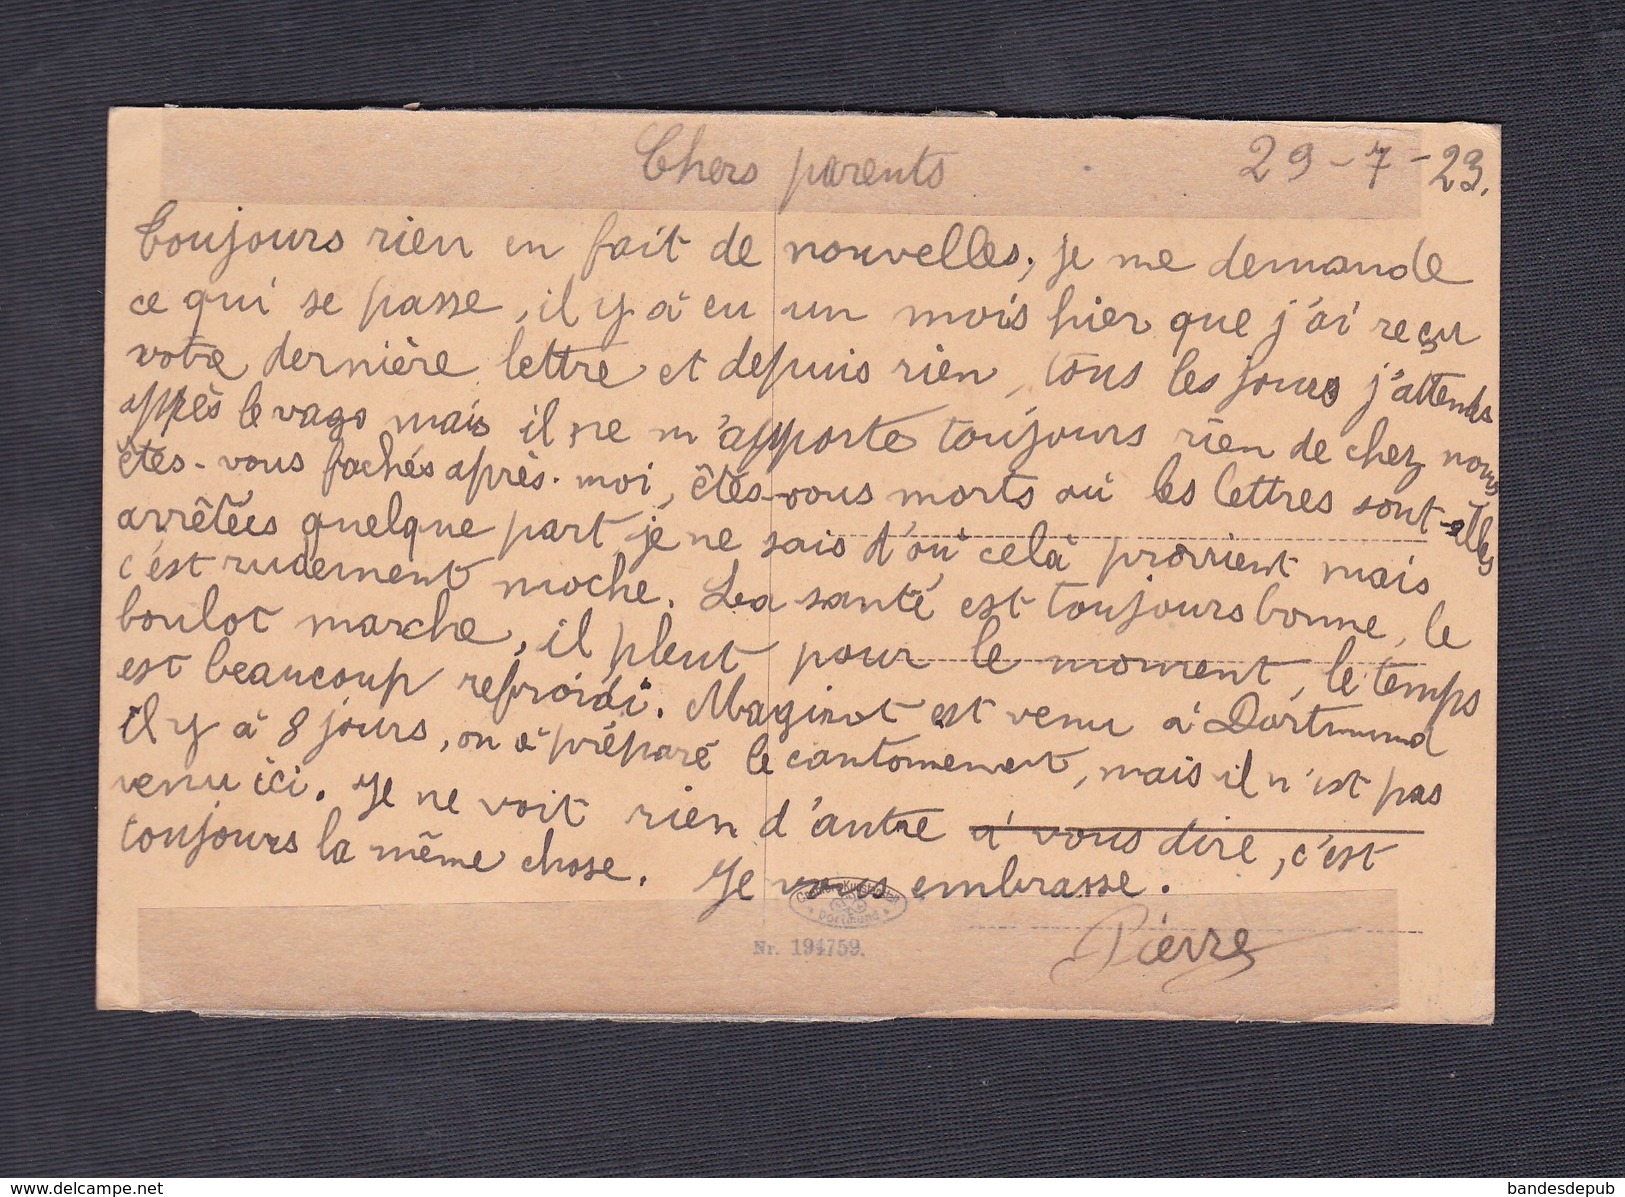 Chers parents 29-7-23.
Toujours rien en fait de nouvelles, je me demande
ce qui se passe, il y à eu un mois hier que j'ai reçu
votre dernière lettre et depuis rien, tous les jours j'attends
après le vago mais il ne m'apporte toujours rien de chez nous
êtes-vous fachés après-moi, êtes-vous morts où les lettres sont-elles
arrêtées quelque part, je ne sais d'où celà provient mais
c'est rudement moche. La santé est toujours bonne, le
boulot marche, il pleut pour le moment, le temps
est beaucoup refroidi. Maginot est venu à Dortmund
il y à 8 jours, on à préparé le cantonnement, mais il n'est pas
venu ici. Je ne voit rien d'autre à vous dire, c'est
toujours la même chose. Je vous embrasse.
Pierre
Dortmund
Nr. 194759.
www.delcampe.net
bandesdepub